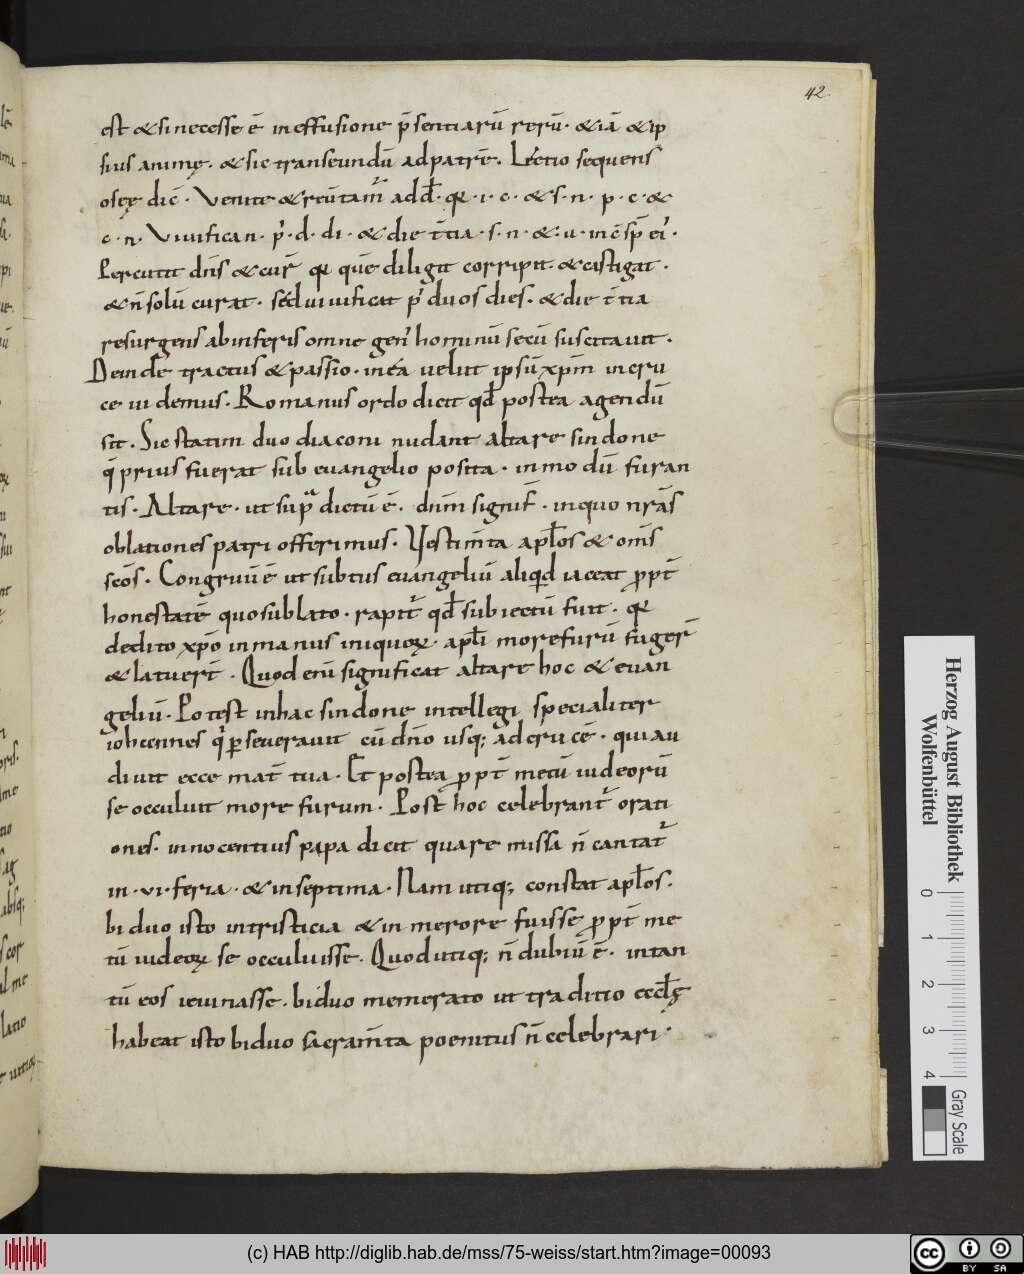 42.
est & si necesse ē in effusione p̄sentiarū rerū· & iā & ip
sius animę· & sic transeundū ad patrē. Lectio sequens
oseę dic̄· Venite & reūtam̄ ad d̄· q̄· i· c· & s· n· p· c· &
c· n· Vivifican· p̄· d· di· & die t̄tia· s· n· &· u· in c̄sp̄ ei᾽·
Percutit dn̄s & curā q̄ quē diligit corripit· & castigat·
& n̄ solū curat· sed vivificat p᾽ duos dies· & die t̄tia
resurgens ab inferis omne gen᾽ hominū secū suscitavit·
Deinde tractus & passio· in ea velut ipsū xp̄m in cru
ce videmus· Romanus ordo dicit qd̄ postea agendū
sit· Sic statim duo diaconi nudant altare sindone
q̄ prius fuerat sub evangelio posita· in modū furan
tis· Altare· ut supᵃ dictū ē· dn̄m signif̄· in quo nr̄as
oblationes patri offerimus· Vestim̄ta apl̄os & om̄s
scōs· Congruū ē ut subtus evangeliū aliqd̄ iaceat ꝓpt̄
honestatē quo sublato· rapit᾽ qd̄ subiectū fuit· q̄
dedito xp̄o in manus iniquoꝝ apl̄i more furū fuger̄
& latuer̄t· Quod enī significat altare hoc & evan
geliū· Potest in hac sindone intellegi specialiter
iohannes q᾽ ꝑseveravit cū dn̄o usq; ad crucē· qui au
divit ecce mat̄ tua· Et postea ꝓpt̄ metū iudeorū
se occuluit more furum· Post hoc celebrant᾽ orati
ones· innocentius papa dicit quare missa n̄ cantat᾽
in· vi· feria· & in septima· Nam utiq; constat apl̄os·
biduo isto in tristicia & in merore fuisse ꝓpt̄ me
tū iudeoꝝ se occuluisse· Quod utiq; n̄ dubiū ē· in tan
tū eos ieiunasse· biduo memorato ut traditio eccl̄ę
habeat isto biduo sacram̄ta poenitus n̄ celebrari·
Herzog August Bibliothek
Wolfenbüttel
0 1 2 3 4
Gray Scale
(c) HAB http://diglib.hab.de/mss/75-weiss/start.htm?image=00093
cc BY SA